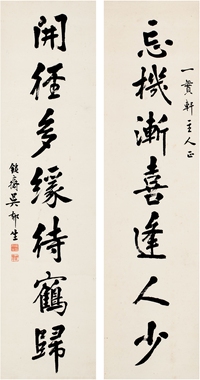 一貫軒主人正
忘機漸喜逢人少
開徑多緣待鶴歸
鈍齋吳郁生